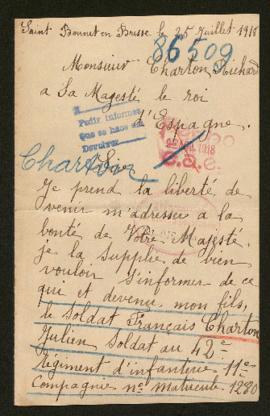 Saint Bonnet en Bresse le 25 Juillet 1918
86509
Monsieur Charton Richard
a Sa Majesté le roi
d'Espagne.
Pedir informes
que se hace
Devolver
1918
S.a.e.
Charton
Sir
Je prend la liberté de
venir m'adresse a la
bonté de Votre Majesté.
je la Supplie de bien
vouloir S'informer de ce
qui et devenue mon fils,
le Soldat Français Charton
Julien Soldat au 42e
Régiment d'infanterie 11e
Compagnie no matricule 1280